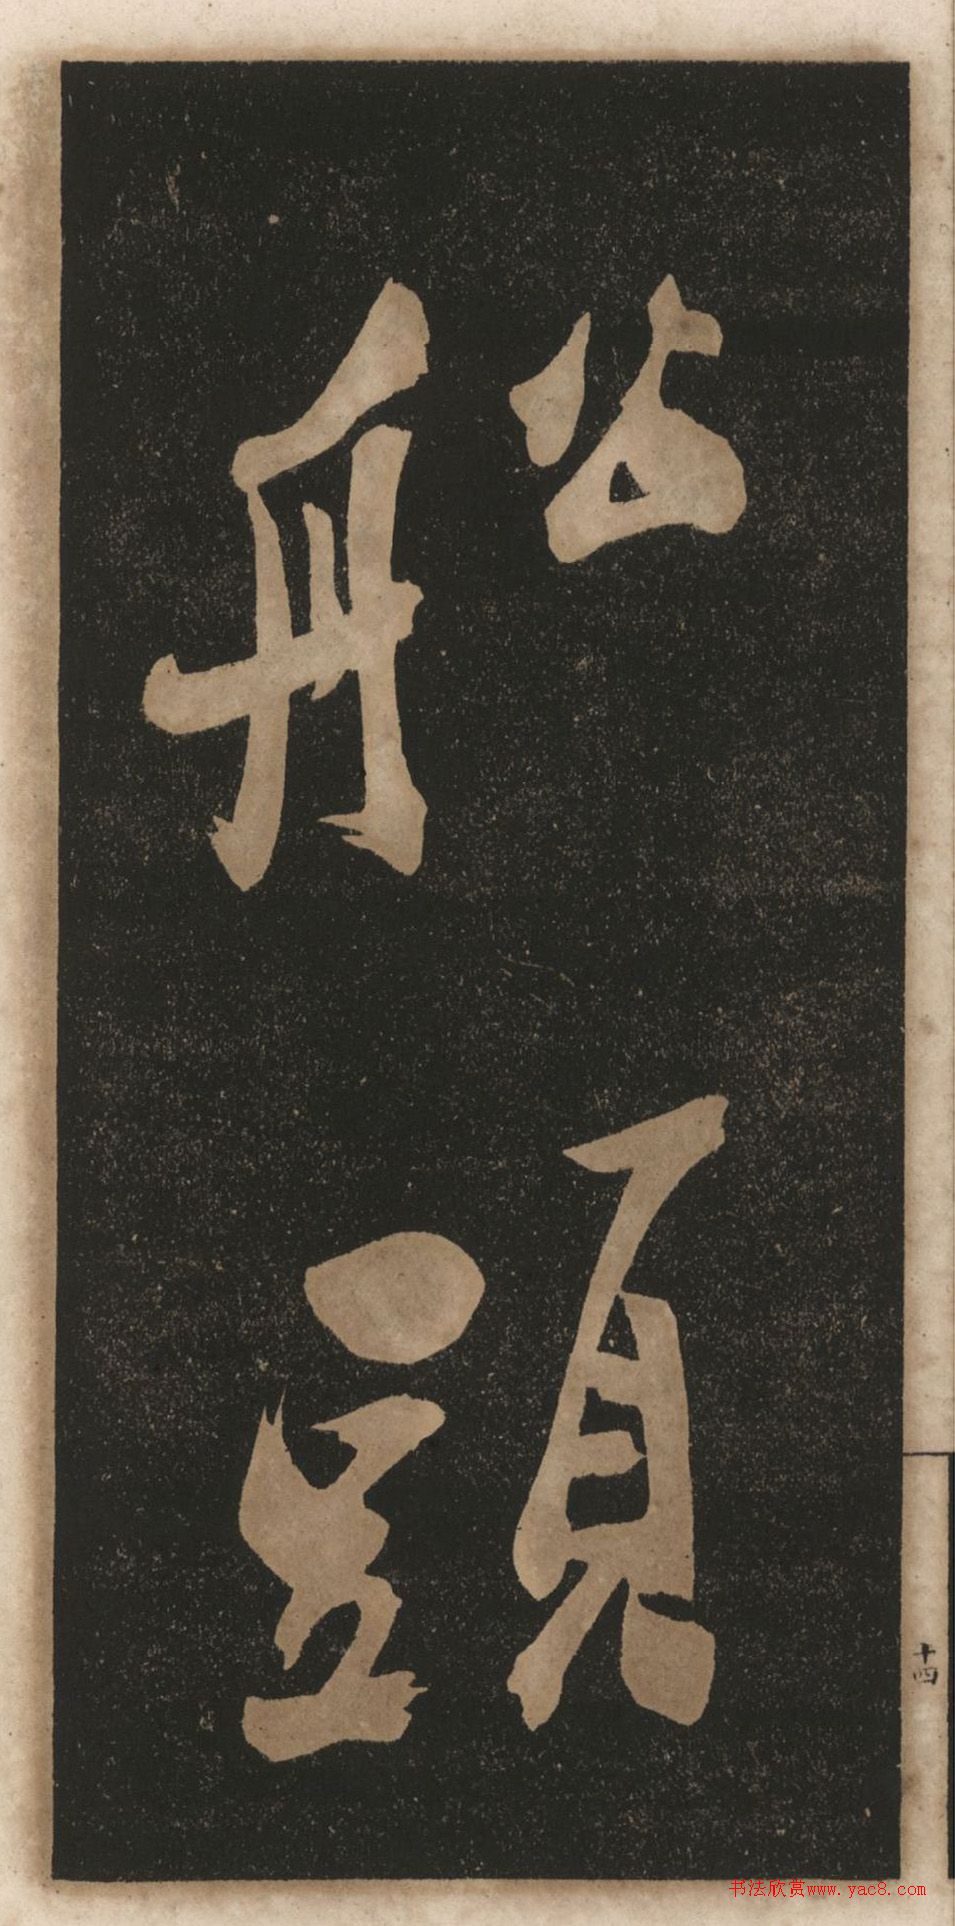 舩頭
十四
书法欣赏www.yac8.com